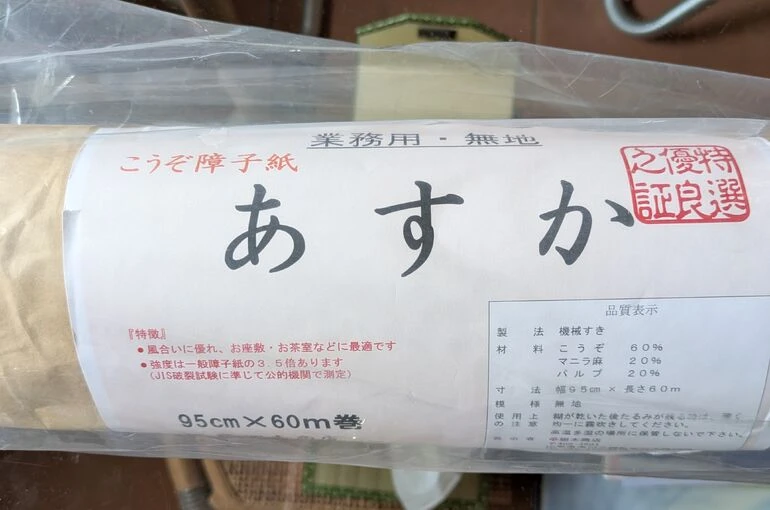 業務用・無地
こうぞ障子紙
特選
優良
之証
あすか
『特徴』
●風合いに優れ、お座敷・お茶室などに最適です
●強度は一般障子紙の3.5倍あります
(JIS破裂試験に準じて公的機関で測定)
95cm×60m巻
品質表示
製法 機械すき
材料 こうぞ 60%
マニラ麻 20%
パルプ 20%
寸法 幅95cm × 長さ60m
模様 無地
使用上 糊が乾いた後たるみが残る時は、軽く
の注意 均一に霧吹きしてください。
高温多湿の場所に保管しないで下さい。